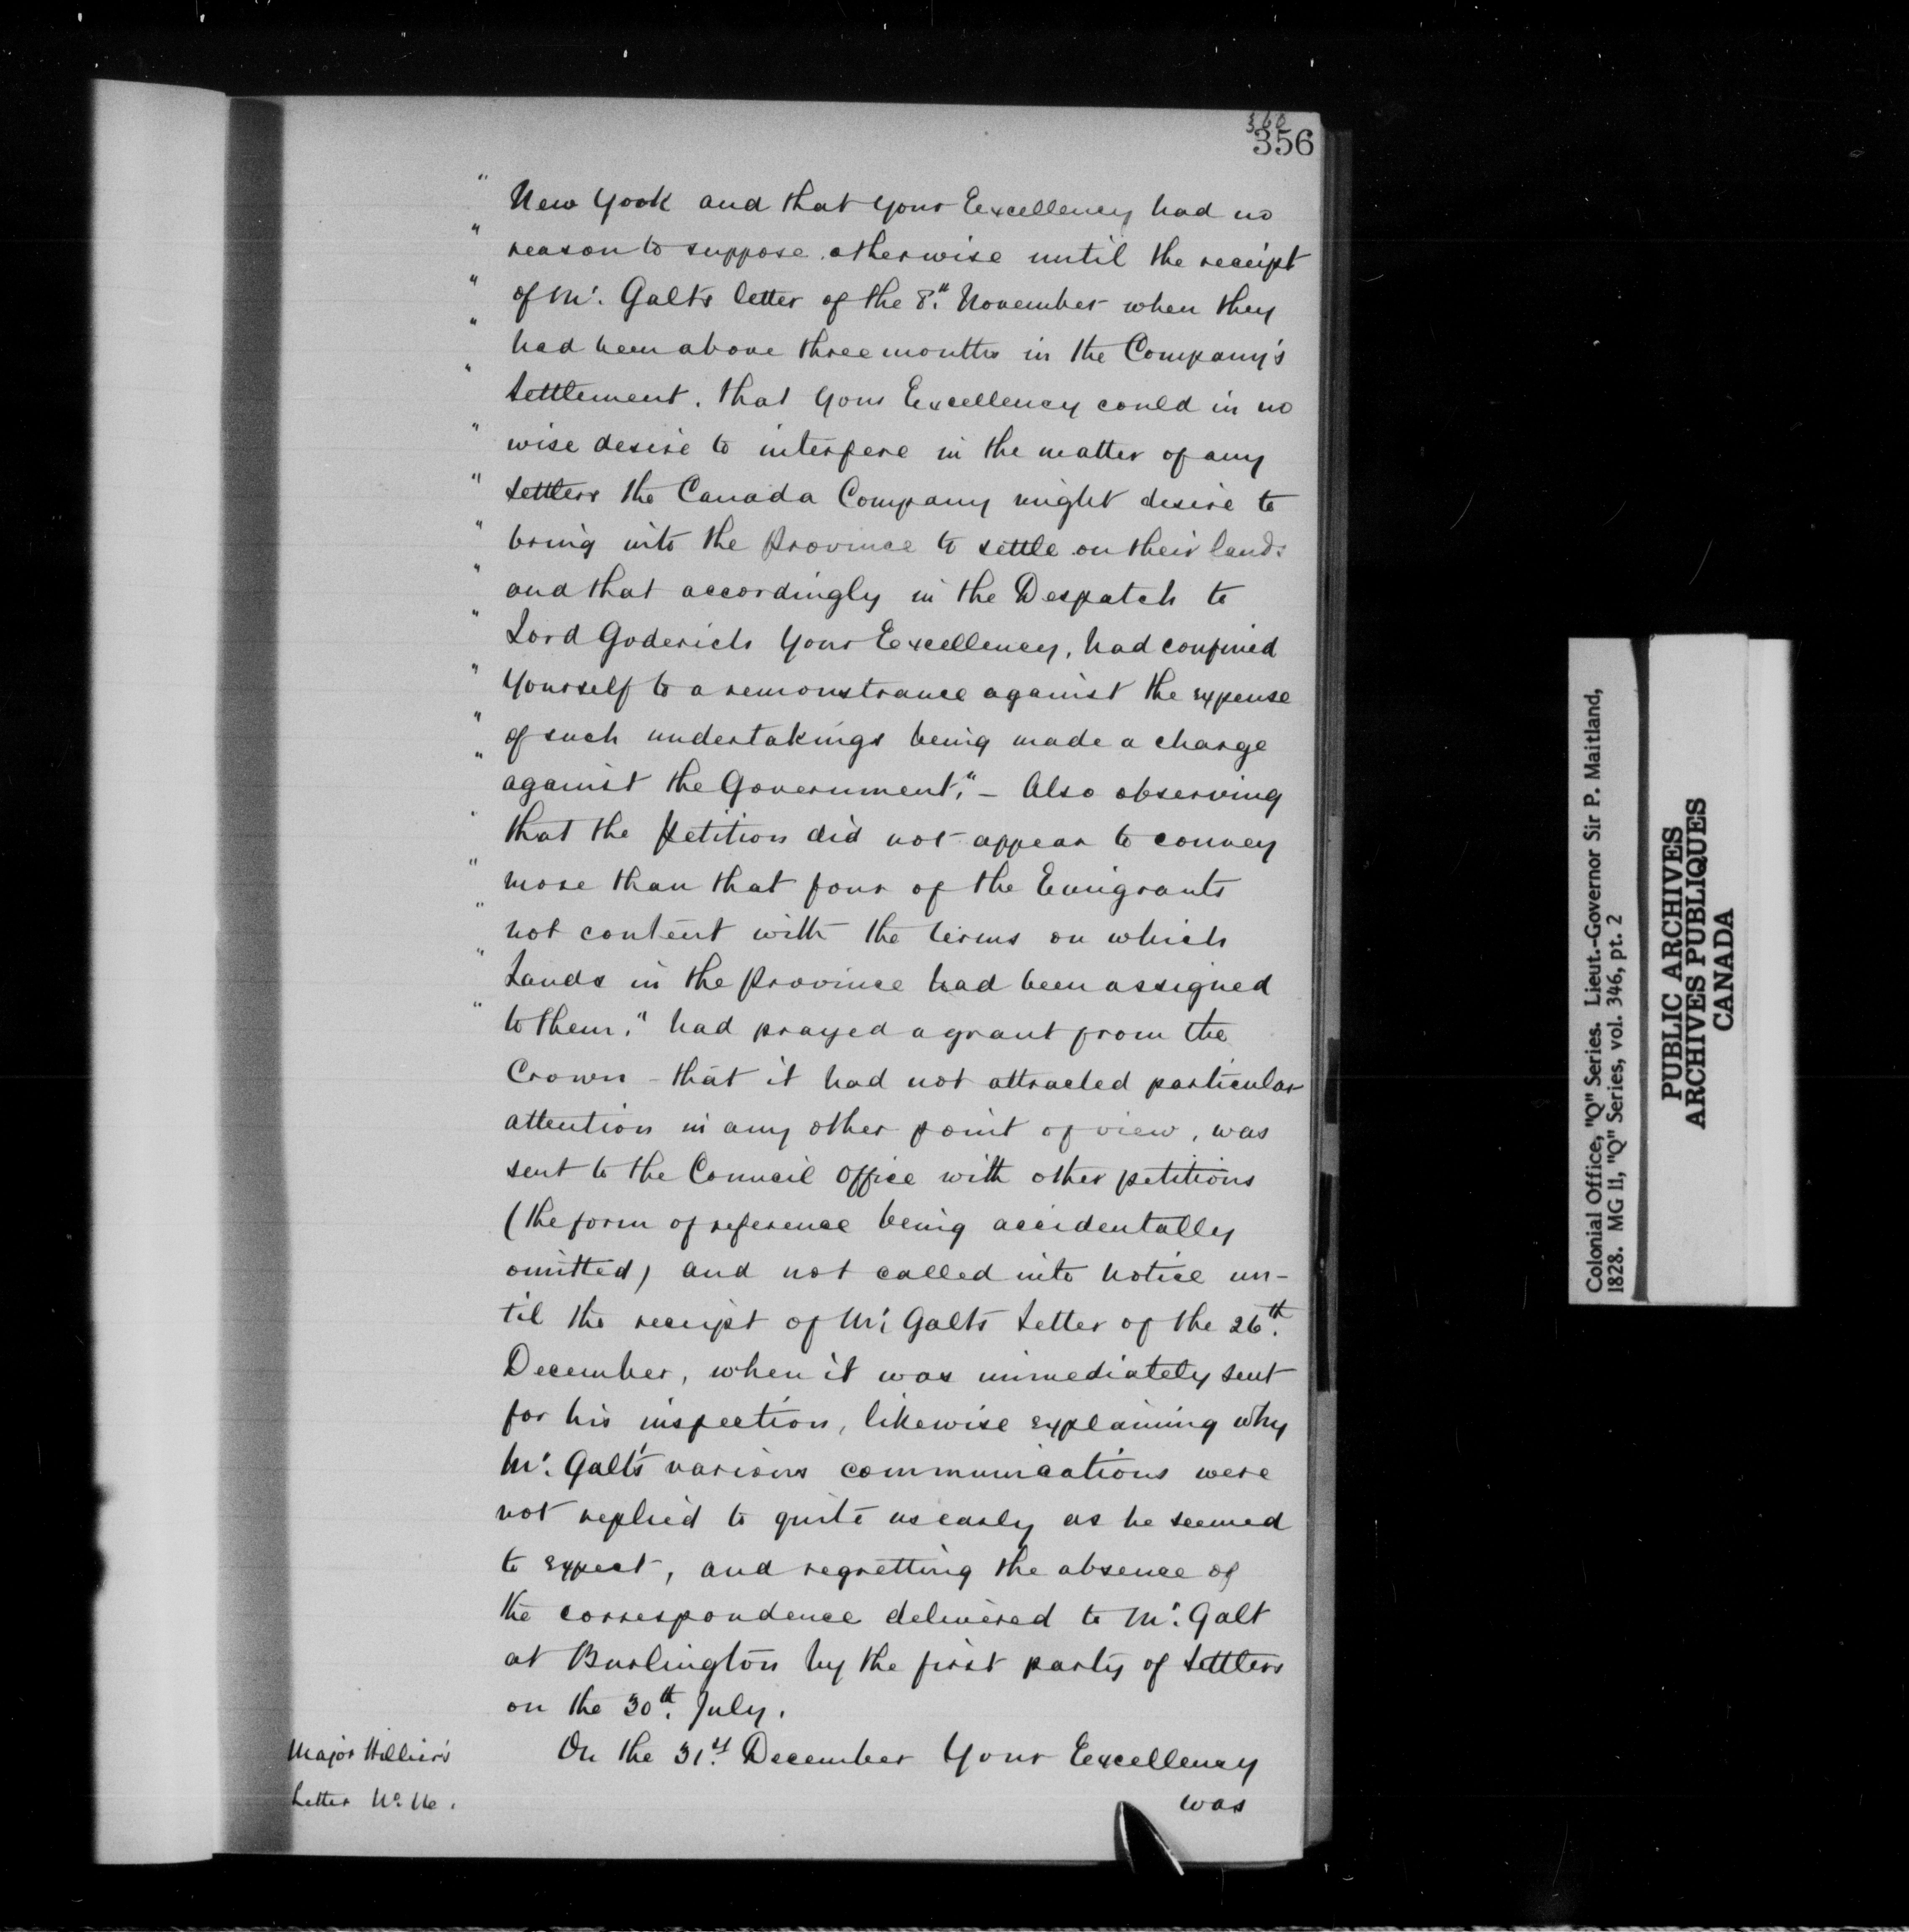 360
356
" New York and that Your Excellency had no
" reason to suppose otherwise until the receipt
" of Mr. Galt's letter of the 8th. November when they
" had been above three months in the Company's
" Settlement. that Your Excellency could in no
" wise desire to interfere in the matter of any
" Settlers the Canada Company might desire to
" bring into the Province to settle on their lands
" and that accordingly in the Despatch to
" Lord Goderich Your Excellency, had confined
" Yourself to a remonstrance against the expense
" of such undertakings being made a charge
" against the Government." - Also observing
" that the Petition did not appear to convey
" more than that four of the Emigrants
" not content with the terms on which
" Lands in the Province had been assigned
" to them." had prayed a grant from the
Crown - that it had not attracted particular
attention in any other point of view, was
sent to the Council Office with other petitions
(the form of reference being accidentally
omitted) and not called into notice un-
til the receipt of Mr. Galts Letter of the 26th.
December, when it was immediately sent
for his inspection, likewise explaining why
Mr. Galt's various communications were
not replied to quite as early as he seemed
to expect, and regretting the absence of
the correspondence delivered to Mr. Galt
at Burlington by the first party of Settlers
on the 30th. July.
Major Hillier's
Letter No.
On the 31st. December Your Excellency
was
Colonial Office, "Q" Series. Lieut.-Governor Sir P. Maitland,
1828. MG 11, "Q" Series, vol. 346, pt. 2
PUBLIC ARCHIVES
ARCHIVES PUBLIQUES
CANADA